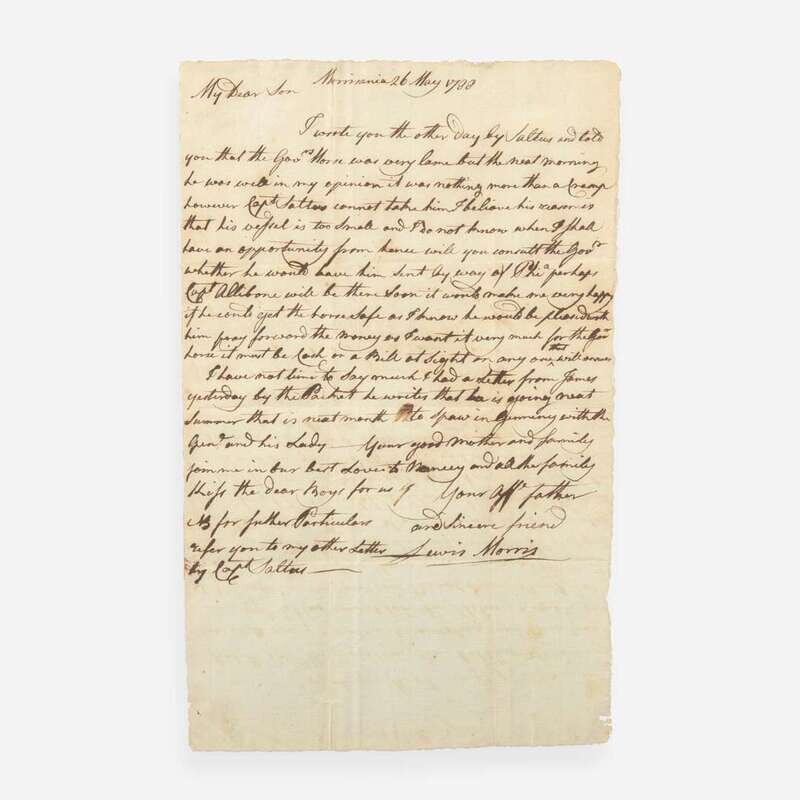 Morrisania 26 May 1788
My Dear Son
I wrote you the other day by Saltus and told
you that the Govrs Horse was very lame but the next morning
he was well in my opinion it was nothing more than a Cramp
however Capt Saltus cannot take him I believe his reason is
that his vessel is too Small and I do not know when I shall
have an opportunity from hence will you consult the Govr
whether he would have him sent by way of Phia perhaps
Capt Allibone will be there Soon it would make me very happy
if he could get the horse Safe as I know he would be pleased with
him pray forward the money as I want it very much for the Govrs
horse it must be Cash or a Bill at Sight or any one that will answer
I have not time to Say much I had a Letter from James
yesterday by the Packet he writes that he is going next
Summer that is next month to Spaw in Germany with the
Genl and his Lady — Your good Mother and family
join me in our best Loves to Nancey and all the family
Kiss the dear Boys for us Your Afft father
NB for futher Particulars and Sincere friend
refer you to my other Letter Lewis Morris
by Capt Saltus —